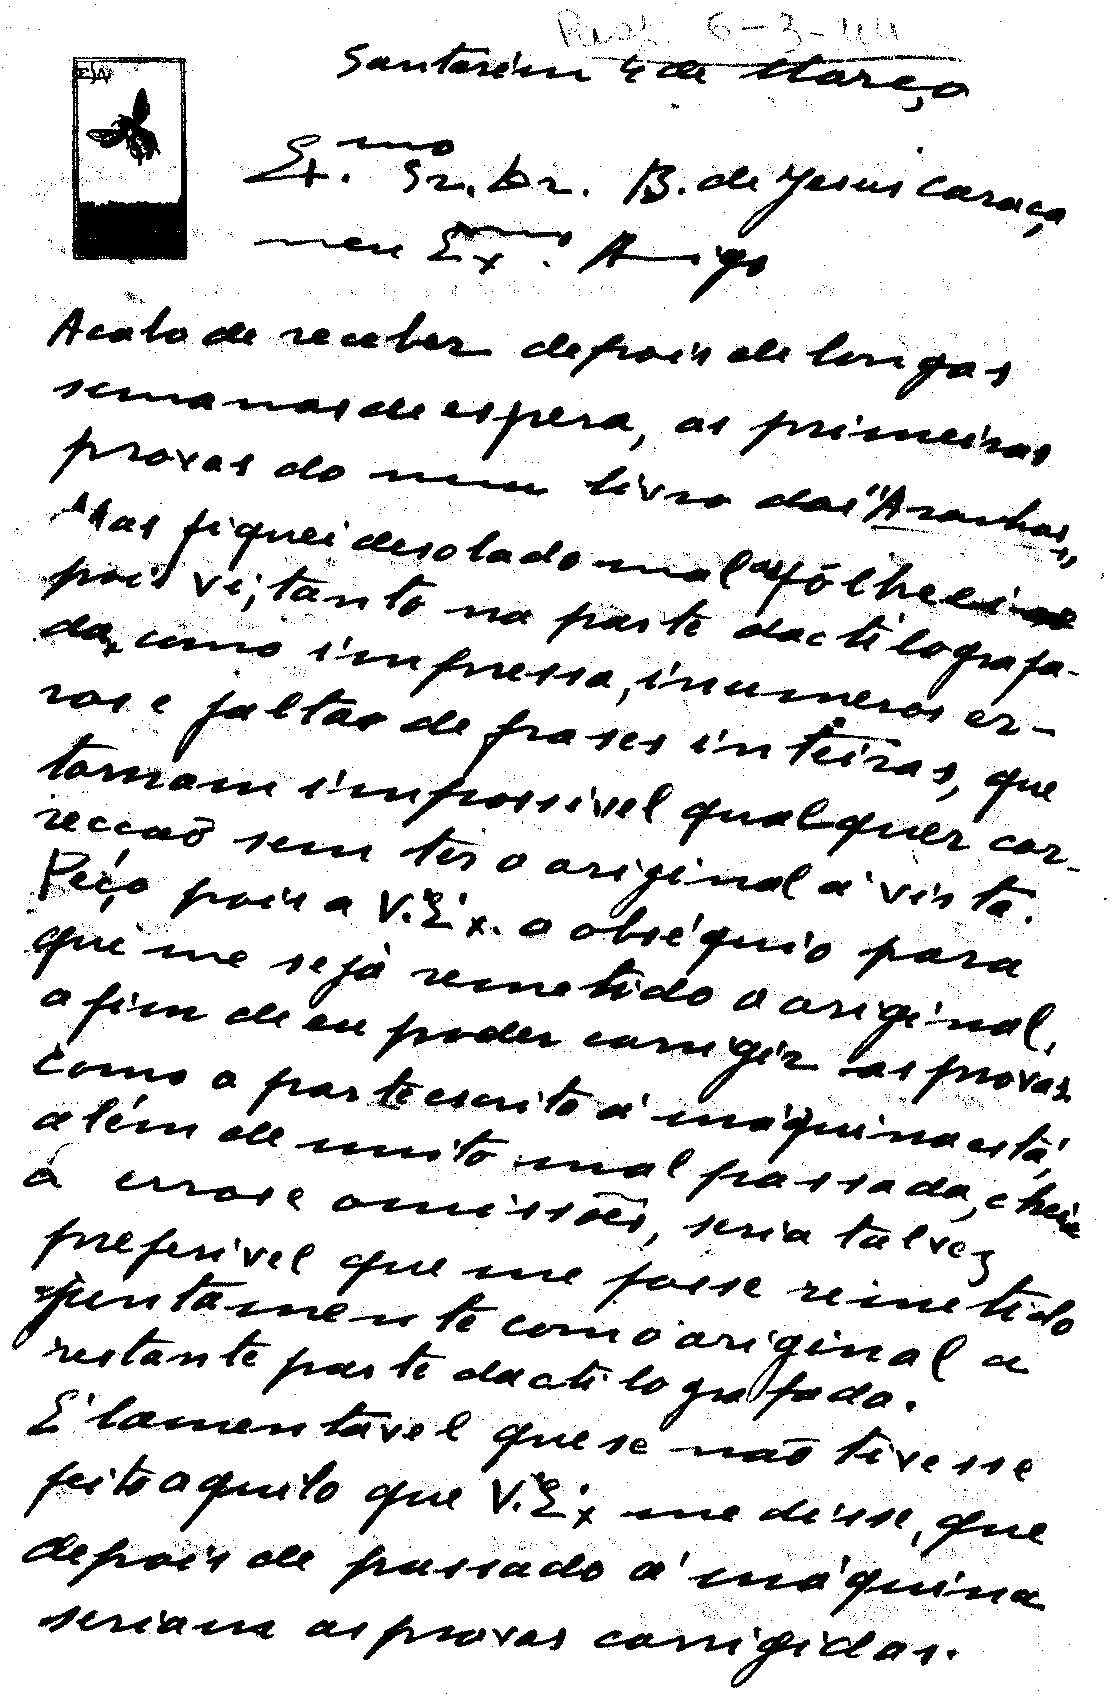 Resp. 6-3-44
Santarém 4 de Março
Ex.mo Sr. Dr. B. de Jesus Caraça
meu Ex.mo Amigo
Acabo de receber depois de longas
semanas de espera, as primeiras
provas do meu livro das "Aranhas"
Mas fiquei desolado mal as folheei
pois vi, tanto na parte dactilografa-
da, como impressa, inumeros er-
ros e faltas de frases inteiras, que
tornam impossivel qualquer cor-
recção sem ter o original á vista.
Peço pois a V. Ex. o obséquio para
que me seja remetido o original,
a fim de eu poder corrigir as provas
Como a parte escrita á máquina está,
além de muito mal passada, cheia
d erros e omissões, seria talvez
preferivel que me fosse remetido
juntamente com o original a
restante parte dactilografada.
E' lamentável que se não tivesse
feito aquilo que V. Ex me disse, que
depois de passado á máquina
seriam as provas corrigidas.